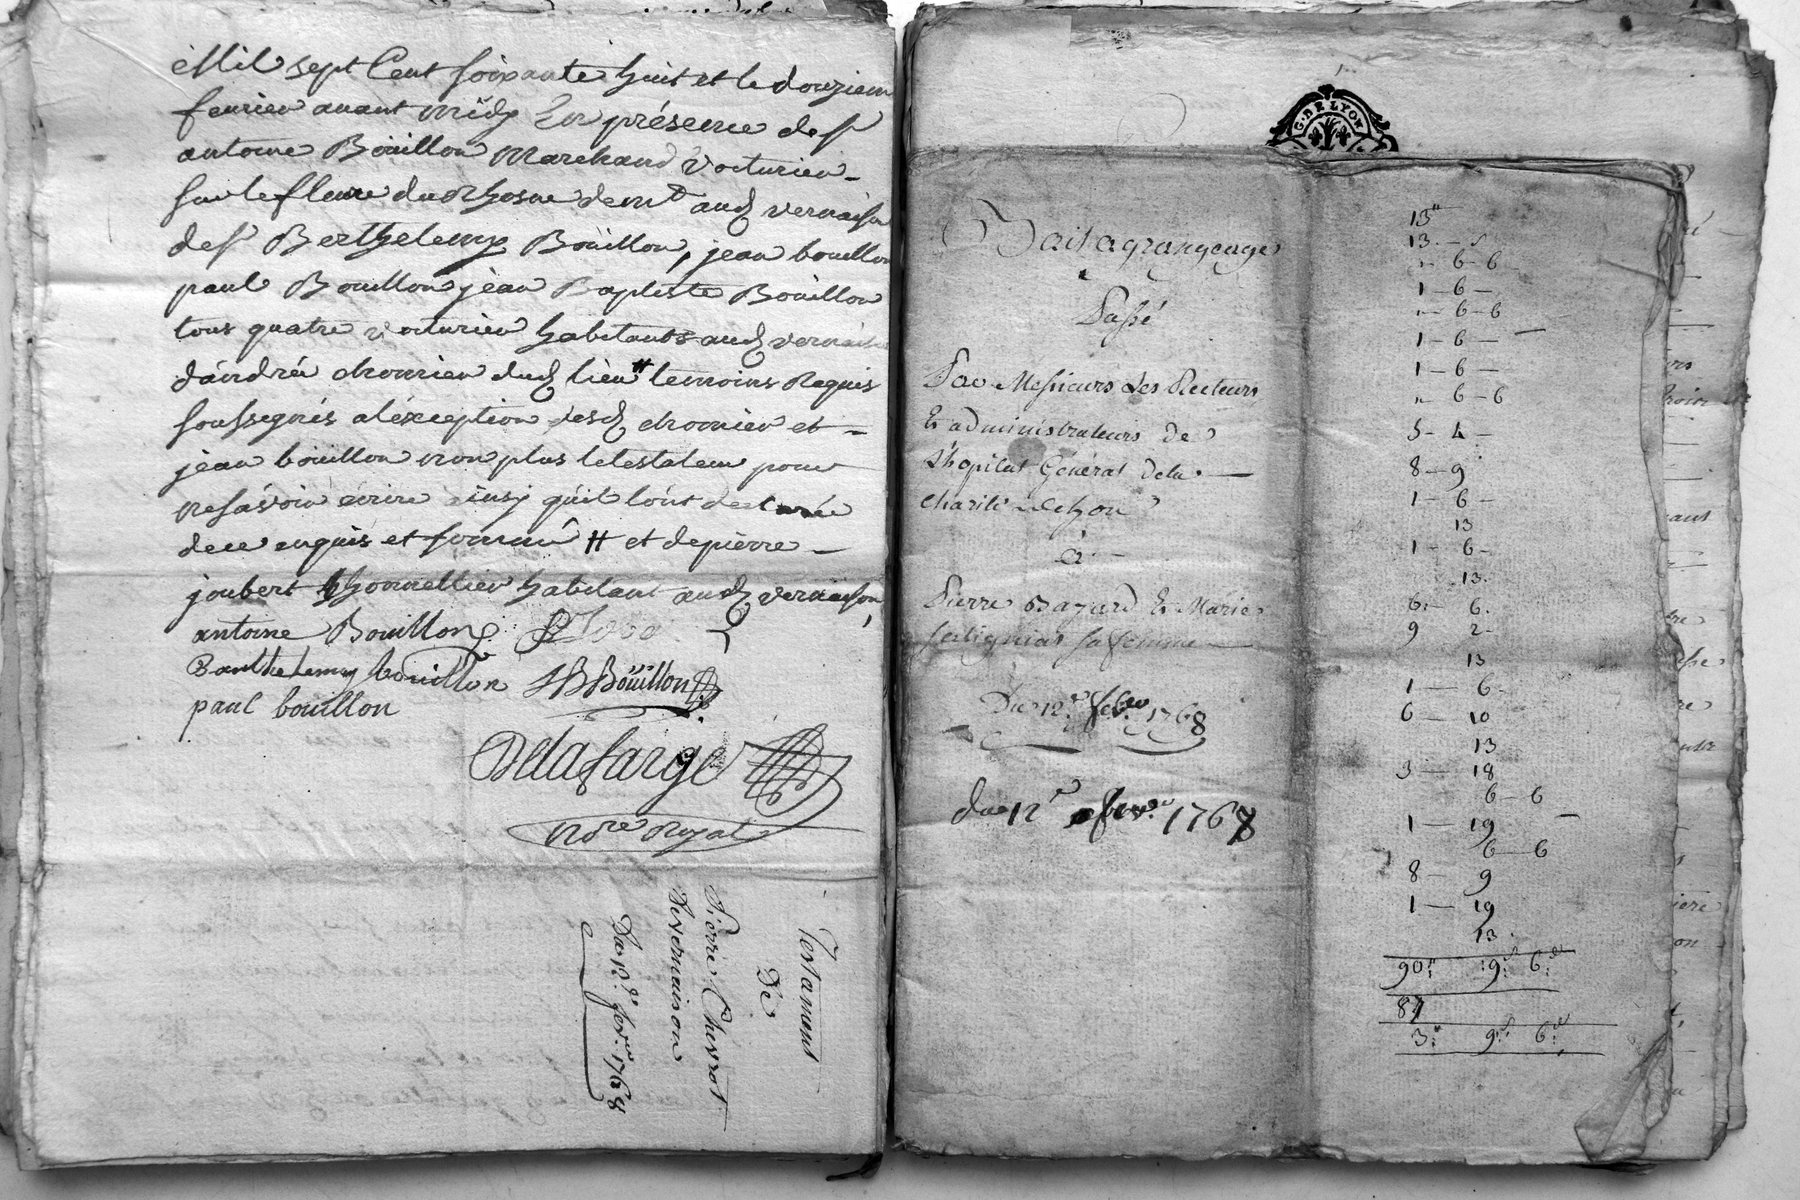 Mil sept Cent soixante huit et le douzieme
fevrier avant midy En présence de sr
antoine Boüillon Marchand voiturier
sur le fleuve du Rhosne demt aud vernaison
de sr Berthelemy Boüillon, jean bouillon
paul Bouillon jean Baptiste Boüillon
tous quatre voiturier habitants aud vernaison
dandré chomier dud lieu # temoins Requis
soussegnés aléxception desd chomier et
jean boüillon non plus letestateur pour
nesavoir écrire ainsy quil lont declarée
dece enquis et sommé # et depierre
joubert thonnellier habitant aud vernaison,
antoine Bouillon
Barthelemy bouillon JBBoüillon
paul bouillon
Delafarge
Nore Royal
Testament
De
Pierre Chevrot
De vernaison
Du 12e fevr. 1768
G. DE LYON
Bail a grangeage
Passé
Par Messieurs Les Recteurs
Et administrateurs de
L'hopital Général dela
Charité de Lyon
a
Pierre Bazard Et Marie
sa femme
Du 12e febver 1768
du 12e fevr. 1768
13"
13 - s
" 6-6
1-6-
" 6-6
1-6-
1-6-
" 6-6
5-4-
8-9
1-6-
13
1-6-
13.
6- 6.
9 2-
13
1 - 6-
6 - 10
13
3 - 18
6-6
1 - 19
6-6
8 - 9
1 - 19
13.
90" 19s 6d
87
3" 9s 6d